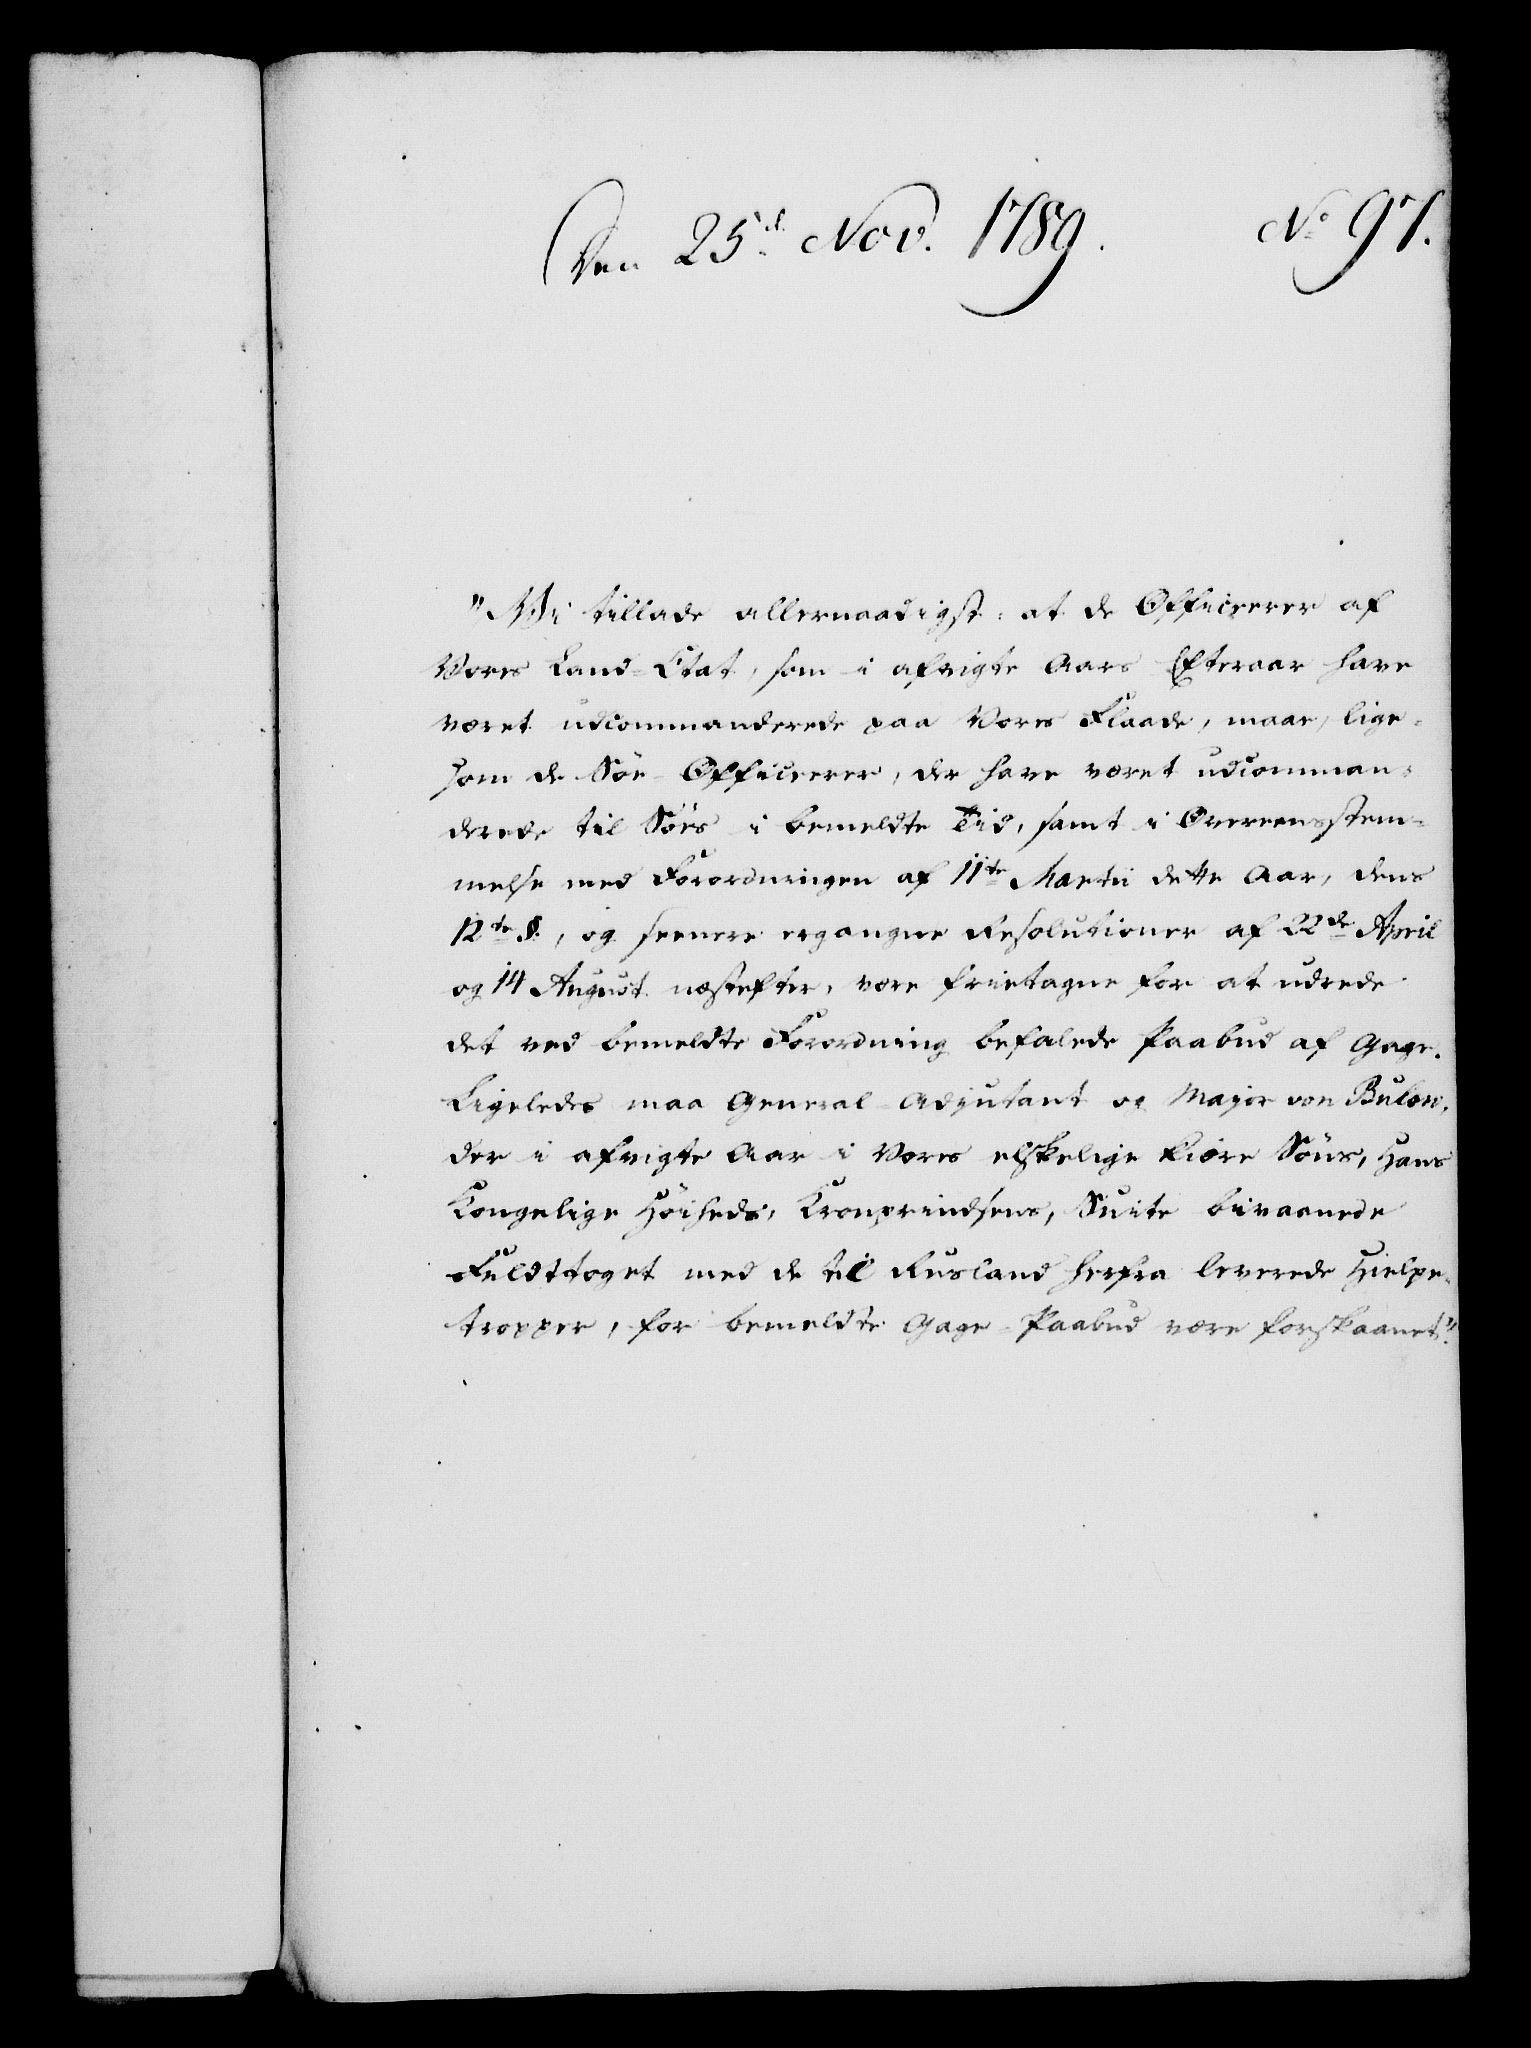 Den 25d. Nov. 1789. No 97.
"Wi tillade allernaadigst: at de Officerer af
Vores Land-Etat, som i afvigte Aars Efteraar have
været udcommanderede paa Vores Flaade, maae, lige-
som de Söe-Officerer, der have været udcomman-
derede til Söes i bemeldte Tid, samt i Overeensstem-
melse med Forordningen af 11te Martii dette Aar, dens
12te §., og seenere ergangne Resolutioner af 22de April
og 14 August næstefter, være frietagne for at udrede
det ved bemeldte Forordning befalede Paabud af Gage.
Ligeledes maa General-Adjutant og Major von Bulow,
der i afvigte Aar i Vores elskelige kiære Söns, Hans
Kongelige Höiheds, Kronprindsens, Suite bivaanede
Feldttoget med de til Rusland herfra leverede Hielpe-
tropper, for bemeldte Gage-Paabud være forskaanet."